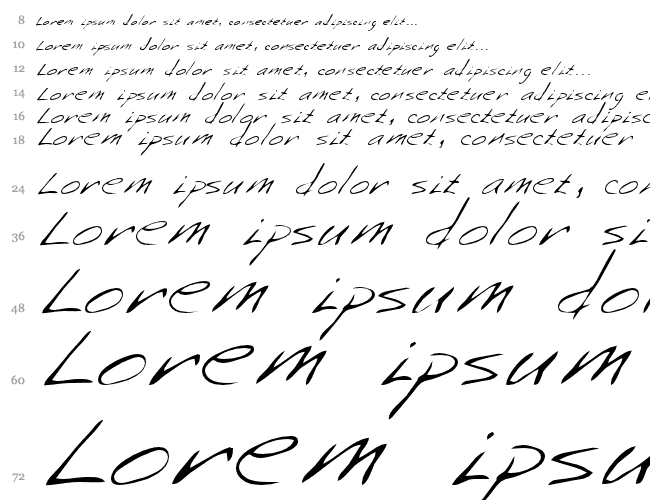 8 Lorem ipsum dolor sit amet, consectetuer adipiscing elit...
10 Lorem ipsum dolor sit amet, consectetuer adipiscing elit...
12 Lorem ipsum dolor sit amet, consectetuer adipiscing elit...
14 Lorem ipsum dolor sit amet, consectetuer adipiscing e
16 Lorem ipsum dolor sit amet, consectetuer adipisc
18 Lorem ipsum dolor sit amet, consectetuer
24 Lorem ipsum dolor sit amet, con
36 Lorem ipsum dolor si
48 Lorem ipsum dol
60 Lorem ipsum
72 Lorem ipsu